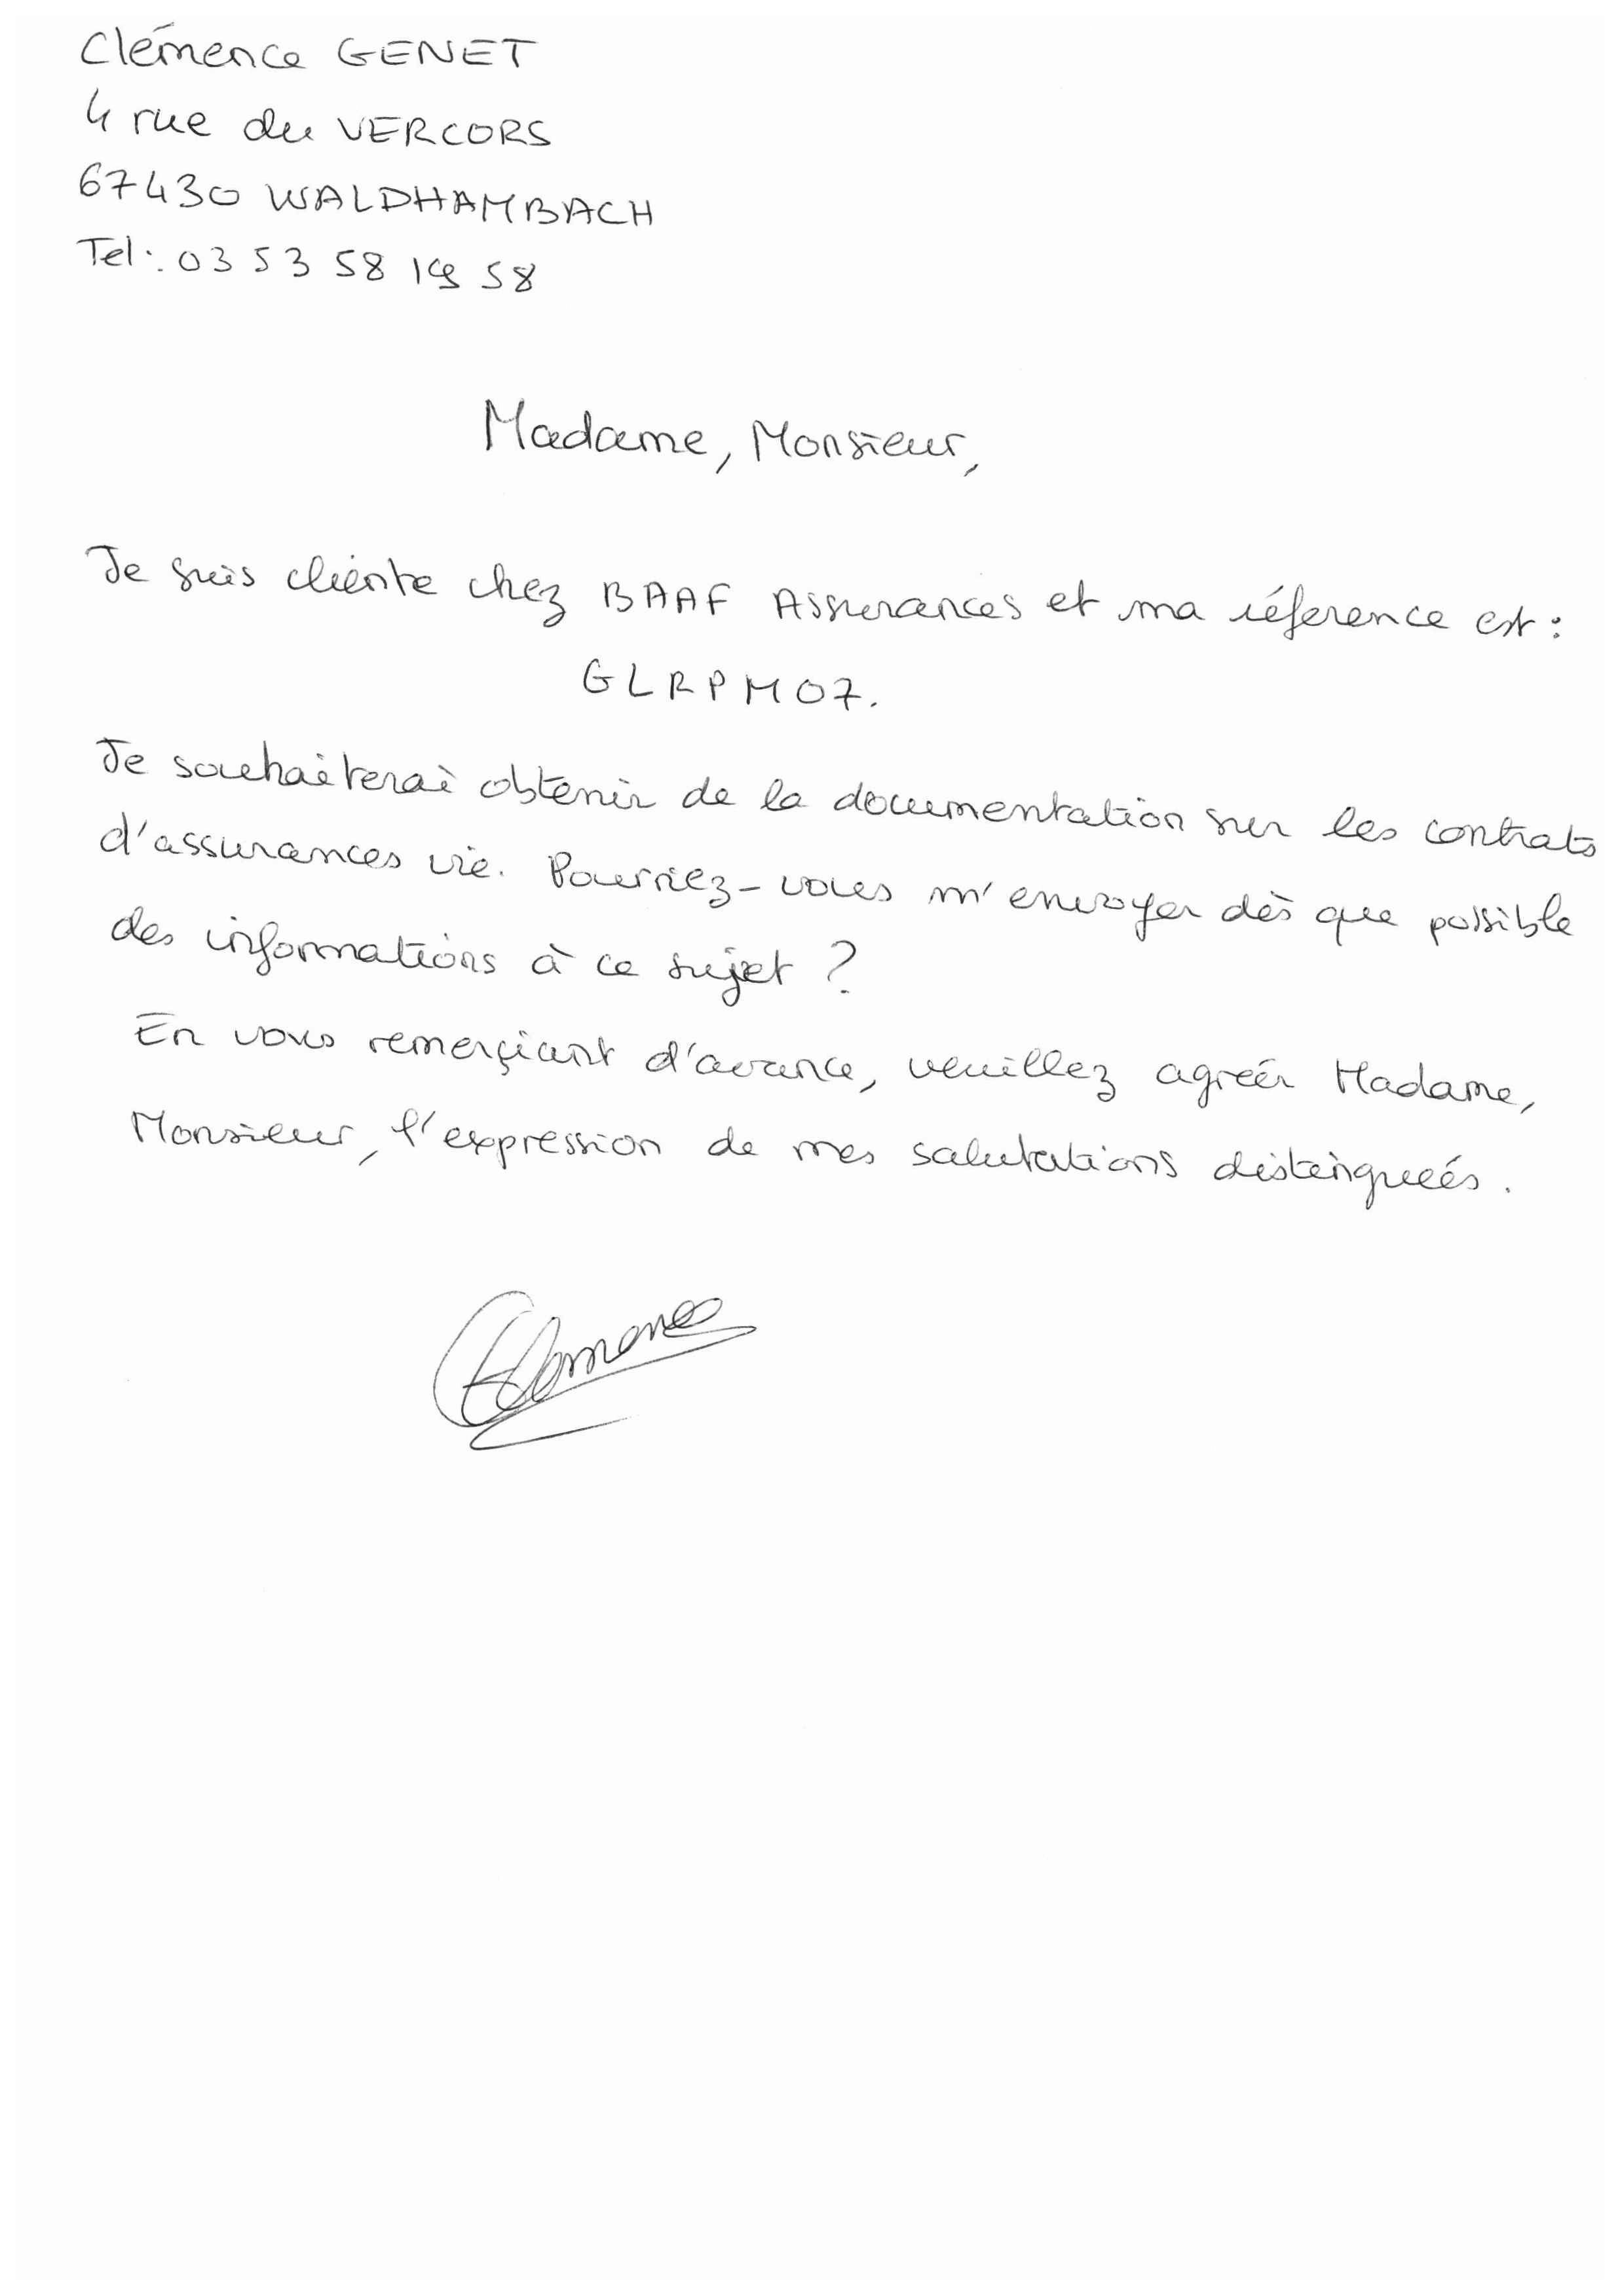 Clémence GENET
4 rue du VERCORS
67430 WALDHAMBACH
Tel: 03 53 58 19 58
Madame, Monsieur,
Je suis cliente chez BAAF Assurances et ma réference est :
GLRPM07.
Je souhaiterai obtenir de la documentation sur les contrats
d'assurances vie. Pourriez-vous m'envoyer dès que possible
des informations à ce sujet ?
En vous remerçiant d'avance, veuillez agréer Madame,
Monsieur, l'expression de mes salutations distinguées.
Clemence